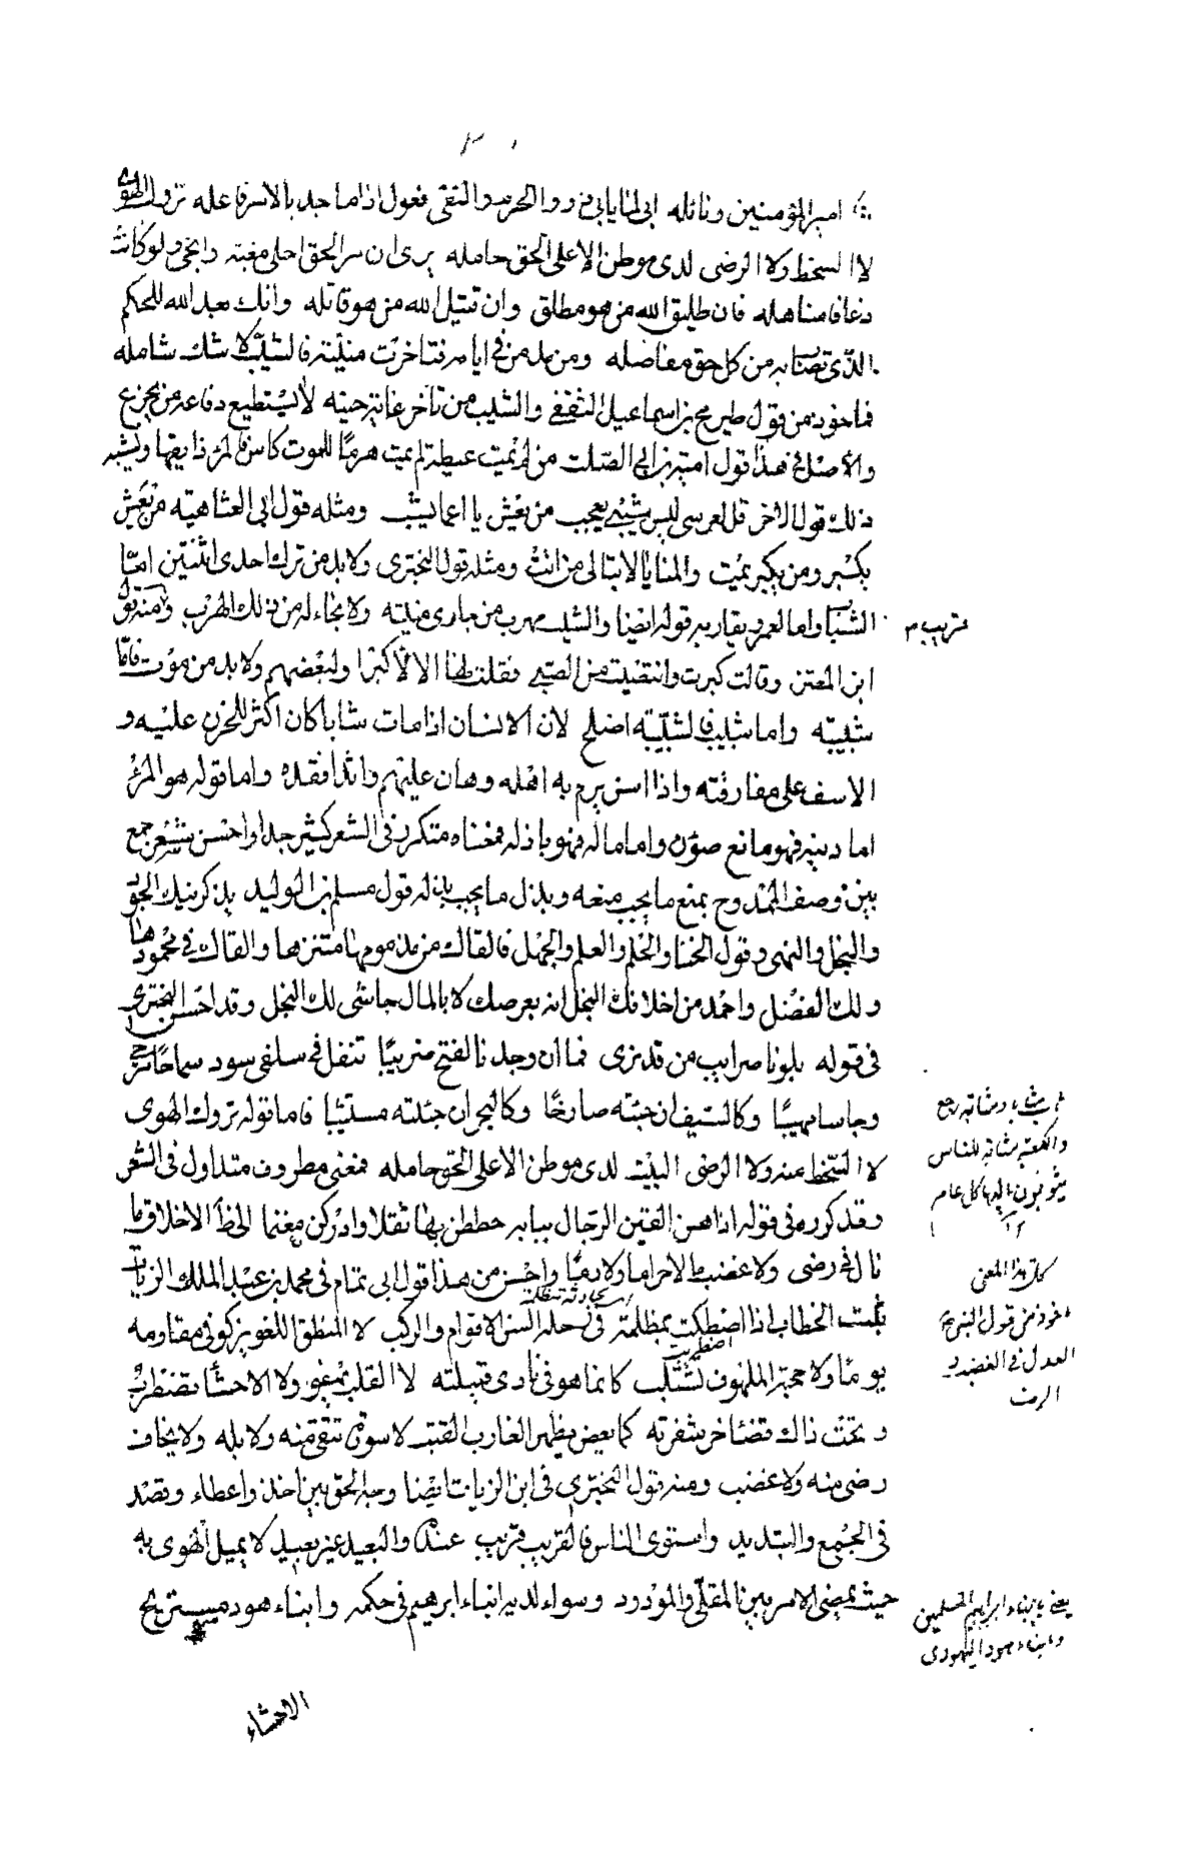 امير المؤمنين ونائله ابى لمنايا بى والحرم والتقى فعول اذا ما جد بالامر فاعله تروك الهوى
لا السخط ولا الرضى لدى موطن الا على الحق حامله يرى ان مر الحق احلى مغبة وانجى ولو كانت
ذعافا مناهله فان طليق الله من هو مطلق وان قتيل الله من هو قاتله وانك بعد الله للحكم
الذى تصاب به من كل حق مفاصله ومن لم يمت في ايامه فتاخرت منيته فالشيب لا شك شامله
فماخوذ من قول طريح بن اسماعيل الثقفى والشيب من تاخر غاية حينه لا يستطيع دفاعه من يجزع
والاصل في هذا قول امية بن ابى الصلت من لم يمت عبطة لم يمت هرما للموت كاس فالمرء ذايقها ويشبه
ذلك قول الاخر قل لعرسى ليس شيبى بعجيب من يعش يا اعما يشب ومثله قول ابى العتاهية من يعش
يكبر ومن يكبر يمت والمنايا لا تبالى من اتت ومثله قول البحترى ولا بد من ترك احدى اثنتين اما
الشباب واما العمر ويقاربه قوله ايضا والشيب مهرب من جارى منيته ولا نجاء له من ذلك الهرب ومنه قول
قريب م
ابن المعتز وقالت كبرت وانتضيت من الصبى فقلت لها الا لاكبرا ولبعضهم ولا بد من موت فاما
شبيبة واما شيب فالشبيبة اصلح لان الانسان اذا مات شابا كان اكثر للحزن عليه و
الاسف على مفارقته واذا اسن برم به اهله وهان عليهم وانذا فقده واما قوله هو المرء
اما دينه فهو مانع صون واما ماله فهو باذله فمعناه متكرر فى الشعر كثير جدا واحسن شعر جمع
بين وصف الممدوح بمنع ما يجب منعه وبذل ما يجب بذله قول مسلم بن الوليد يذكرنيك الجود
والبخل والنهى وقول الخنا والحلم والعلم والجهل فالقاك من مذمومها متنزها والقاك في محمودها
ولك الفضل واحمد من اخلاقك البخل انه بعرضك لا بالمال حاشى لك البخل وقد احسن البحترى
فى قوله بلونا ضرايب من قد نرى فما ان وجدنا لفتح ضريبا تنقل فى سلفى سود سماحا مرجى
وباسا مهيبا وكالسيف ان جئته صارخا وكالبحر ان جئته مستثيبا فاما قوله تروك الهوى
لا السخط منه ولا الرضى البيت لدى موطن الا على الحق حامله فمعنى مطروق متداول فى الشعر
وقد كرره فى قوله اذا هن القين الرجال ببابه حططن بها ثقلا وادركن مغنما لحظ الاخلاق ما
نال فى رضى ولا غضب مالا حراما ولا دما واحسن من هذا قول ابى تمام فى محمد بن عبد الملك الزيات
ثبت الخطاب اذا اصطكت بمظلمة فى رحله السن الاقوام والركب لا المنطق اللغو يزكو فى مقاومه
اضطربت
يوما ولا حجة الملهوف تستلب كانما هو فى نادى قبيلته لا القلب يهفو ولا الاحشا تضطرب
وتحت ذاك قضاء حز شفرته كما يعض بظهر الغارب القتب لا سورة تتقى منه ولا بله ولا يخاف
رضى منه ولا غضب ومنه قول البحترى فى ابن الزيات ايضا وجه الحق بين اخذ واعطاء وقصد
فى الجمع والتبديد واستوى الناس فالقريب قريب عنده والبعيد غير بعيد لا يميل الهوى به
حيث يمضى الامر بين المقلى والمودود وسواء لديه ابناء ابرهيم فى حكمه وابناء هود مستريح
والكعبة مثابة للناس
يثوبون اليها كل عام
كل هذا المعنى
ماخوذ من قول
العدل فى الغضب و
الرضى
يعنى بابناء ابراهيم المسلمين
وابناء هود اليهودى
الاحشاء